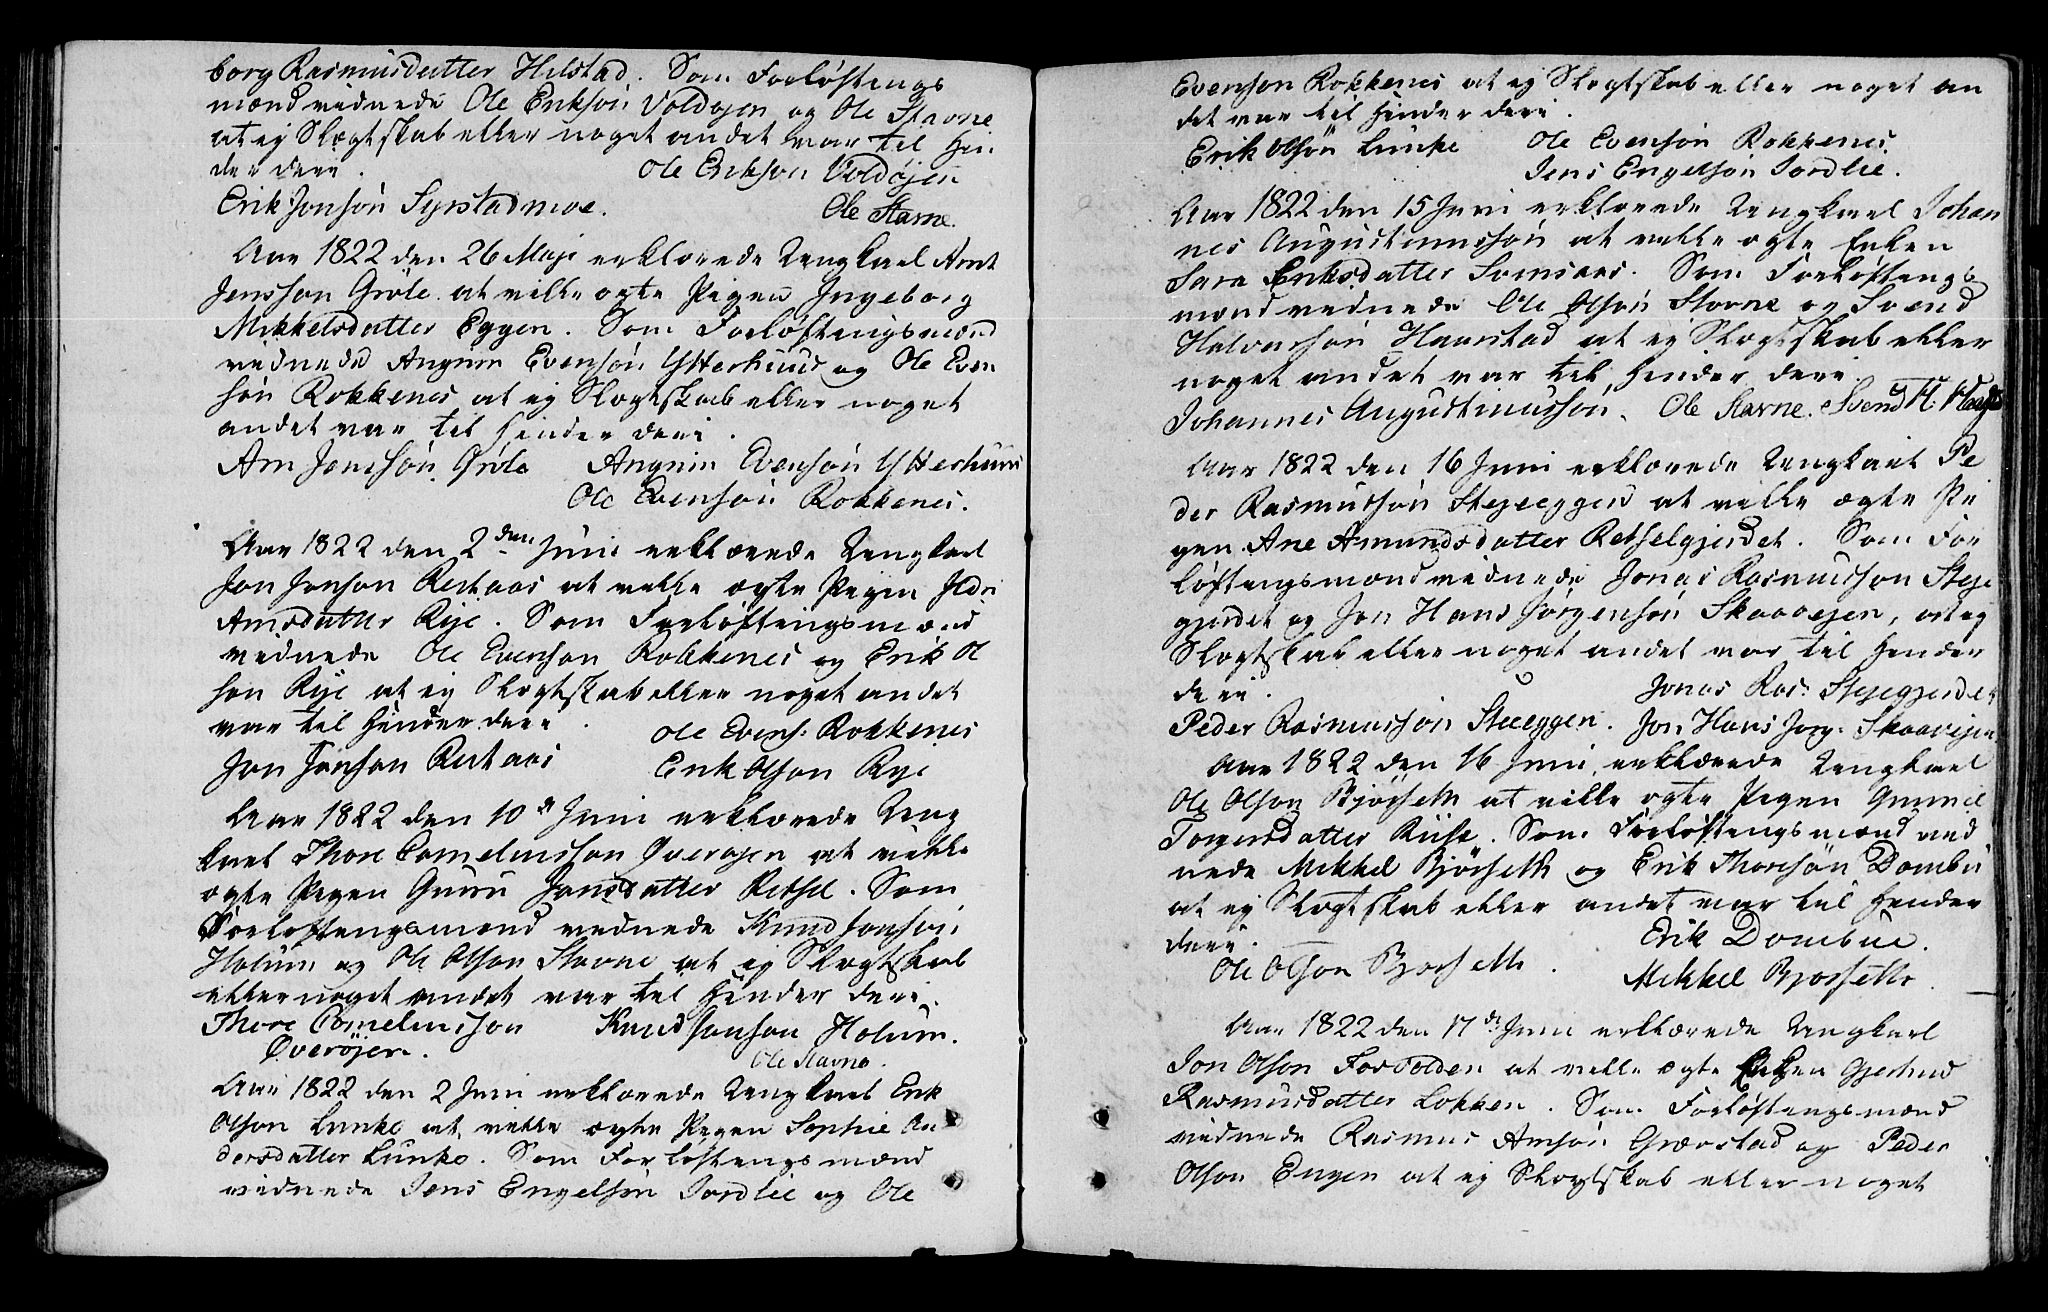 borg Rasmusdatter Hilstad. Som Forløftnings
mænd vidnede Ole Erikson Voldøjen og Ole Stavne
at ej Slægtskab eller noget andet var til Hin
der deri.
Ole Erikson Voldøjen
Erik Jonsøn Syrstadmoe.
Ole Stavne.
Aar 1822 den 26 Maji erklærede Ungkarl Arnt
Jensson Gröte at ville ægte Pigen Ingeborg
Mikkelsdatter Eggen. Som Forløftningsmænd
vidnede Angrim Evensøn Ytterhuus og Ole Even
søn Rokkenes at ej Slægtskab eller noget
andet var til Hinder deri.
Arn Jensson Gröte Angrim Evensøn Ytterhuus
Ole Evensøn Rokkenes.
Aar 1822 den 2den Juni erklærede Ungkarl
Jon Jonson Restaas at ville ægte Pigen Ildri
Arnsdatter Rije. Som Forløftningsmænd
vidnede Ole Evenson Rokkenes og Erik Ol
son Rije at ej Slægtskab eller noget andet
var til Hinder deri.
Ole Evens: Rokkenes
Jon Jonson Restaas
Erik Olson Rije
Aar 1822 den 10 d Juni erklærede Ung
karl Thore Cornelius​son Överøjen at ville
ægte Pigen Guru Jonsdatter Retsel. Som
Forløftningsmænd vidnede Knud Jonson
Holum og Ole Olson Stavne at ej Slægtskab
eller noget andet var til Hinder deri.
Thore Corneliusson Knud Jonson Holum.
Överøjen.
Ole Stavne.
Aar 1822 den 2 Juni erklærede Ungkarl Erik
Olson Lunke at ville ægte Pigen Sophie An
dersdatter Lunke. Som Forløftningsmænd
vidnede Jens Engelsøn Jordlie og Ole
Evenson Rokkenes at ej Slægtskab eller noget an
det var til Hinder deri.
Erik Olsøn Lunke Ole Evensøn Rokkenes.
Jens Engelsøn Jordlie.
Aar 1822 den 15 Juni erklærede Ungkarl Johan
nes Augustinussøn at ville ægte Enken
Sara Eriksdatter Svensaas. Som Forløftnings
mænd vidnede Ole Olsøn Stavne og Svend
Halvorsøn Haarstad at ej Slægtskab eller
noget andet var til Hinder deri.
Johannes Augustinussøn. Ole Stavne. Svend H.
Aar 1822 den 16 Juni erklærede Ungkarl Pe
der Rasmusson Stejeeggen at ville ægte Pi
gen Ane Amundsdatter Retselgjerdet. Som For
løftningsmænd vidnede Jonas Rasmusson Steje
gjerdet og Jon Hans Jörgensön Skaavejen, at ej
Slægtskab eller noget andet var til Hinder
deri.
Jonas Ras: Stejegjerdet
Peder Rasmussön Steeeggen. Jon Hans Jörg: Skaavejen
Aar 1822 den 16 Juni erklærede Ungkarl
Ole Olson Bjørseth at ville ægte Pigen Gunnil
Torgersdatter Riise. Som Forløftningsmænd vid
nede Mikkel Bjørseth og Erik Thoresøn Dombu
at ej Slægtskab eller andet var til Hinder
deri.
Erik Dombue.
Ole Olson Bjorseth.
Mikkel Bjorseth.
Aar 1822 den 17 de Juni erklærede Ungkarl
Jon Olson Forsolden at ville ægte Enken Gjertrud
Rasmusdatter Lokken. Som Forløftningsmænd
vidnede Rasmus Arnsøn Grøvstad og Peder
Olson Engen at ej Slægtskab eller noget